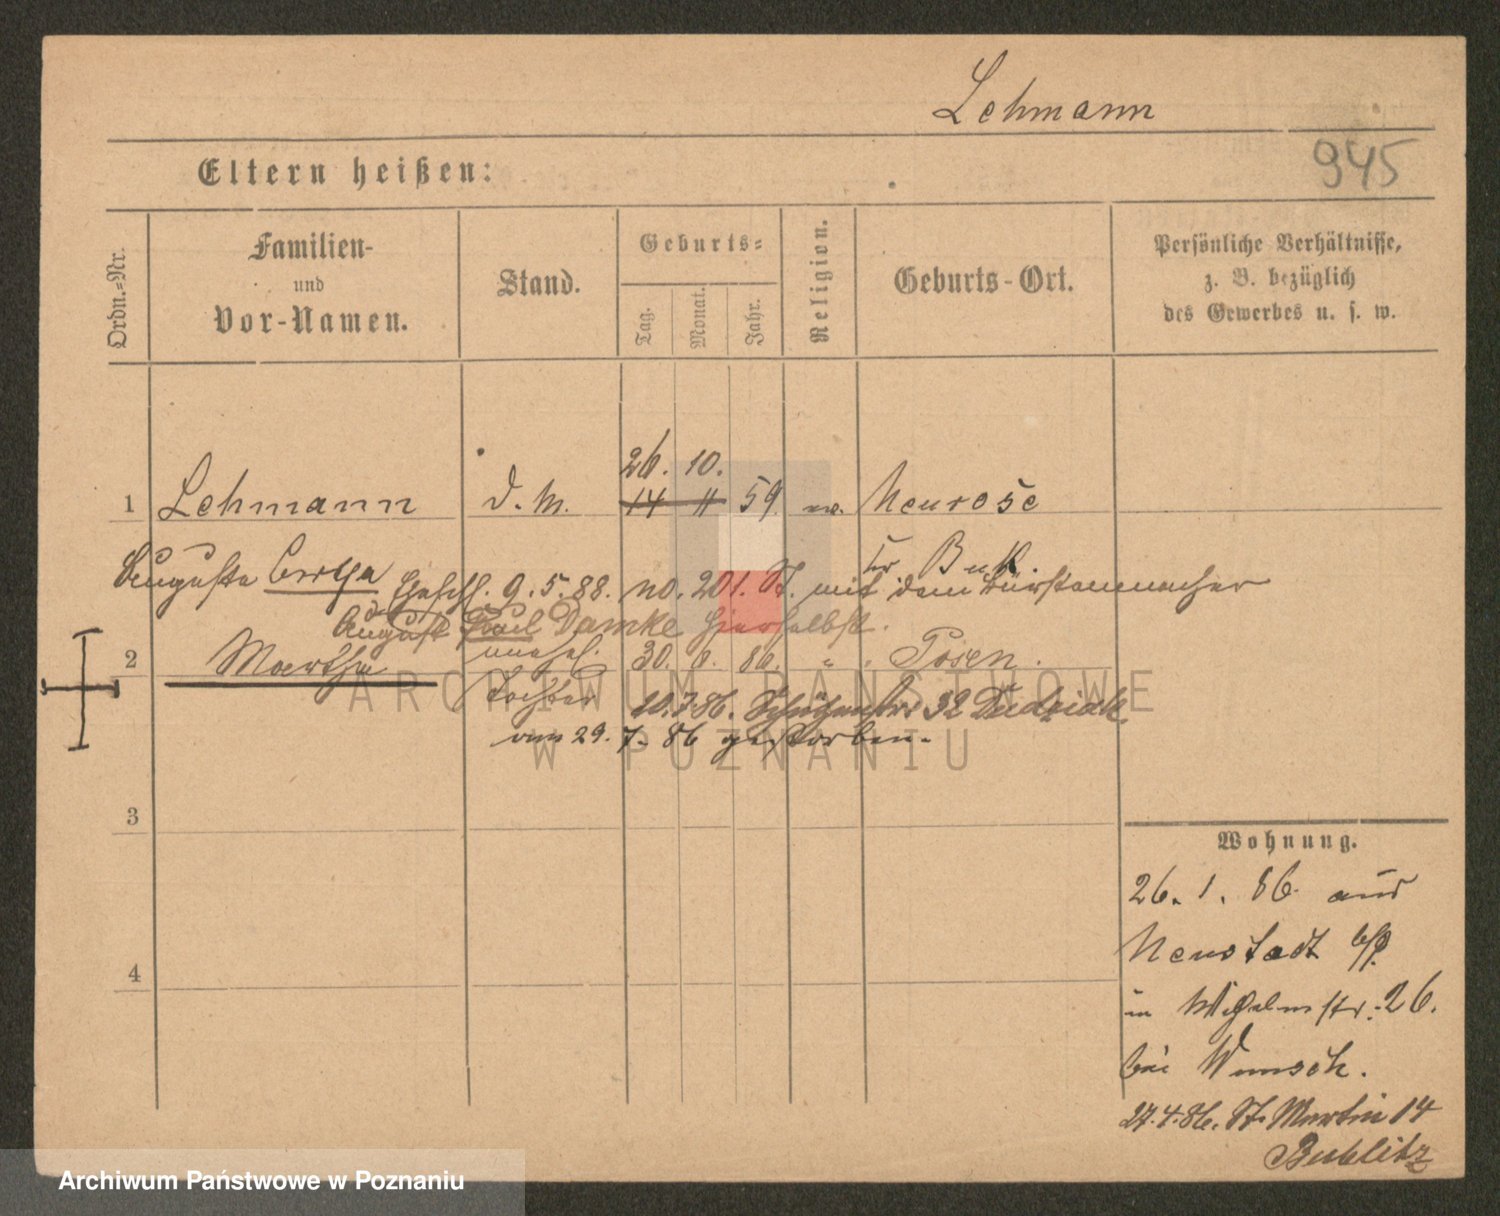 Lehmann
945
Eltern heißen:
Ordn.-Nr.
Familien-
und
Vor-Namen.
Stand.
Geburts-
Tag.
Monat.
Jahr.
Religion.
Geburts-Ort.
Persönliche Verhältnisse,
z. B. bezüglich
des Gewerbes u. s. w.
26. 10.
1 Lehmann d. M. 14 11 59 ev. Neurose
Kr Buk
Auguste Bertha Ehesch. 9. 5. 88. no. 201. St. mit dem Bürstenmacher
August Paul Damke hierselbst.
2 Martha unehel. 30. 6. 86. " Posen.
Tochter 10.7.86. Schützenstr. 32 Dudziak
am 29. 7. 86 gestorben.
3
4
Wohnung.
26. 1. 86. aus
Neustadt b/P.
in Wilhelmstr. 26.
bei Wunsch.
27.4.86. St. Martin 14
Bublitz
ARCHIWUM PAŃSTWOWE
W POZNANIU
Archiwum Państwowe w Poznaniu